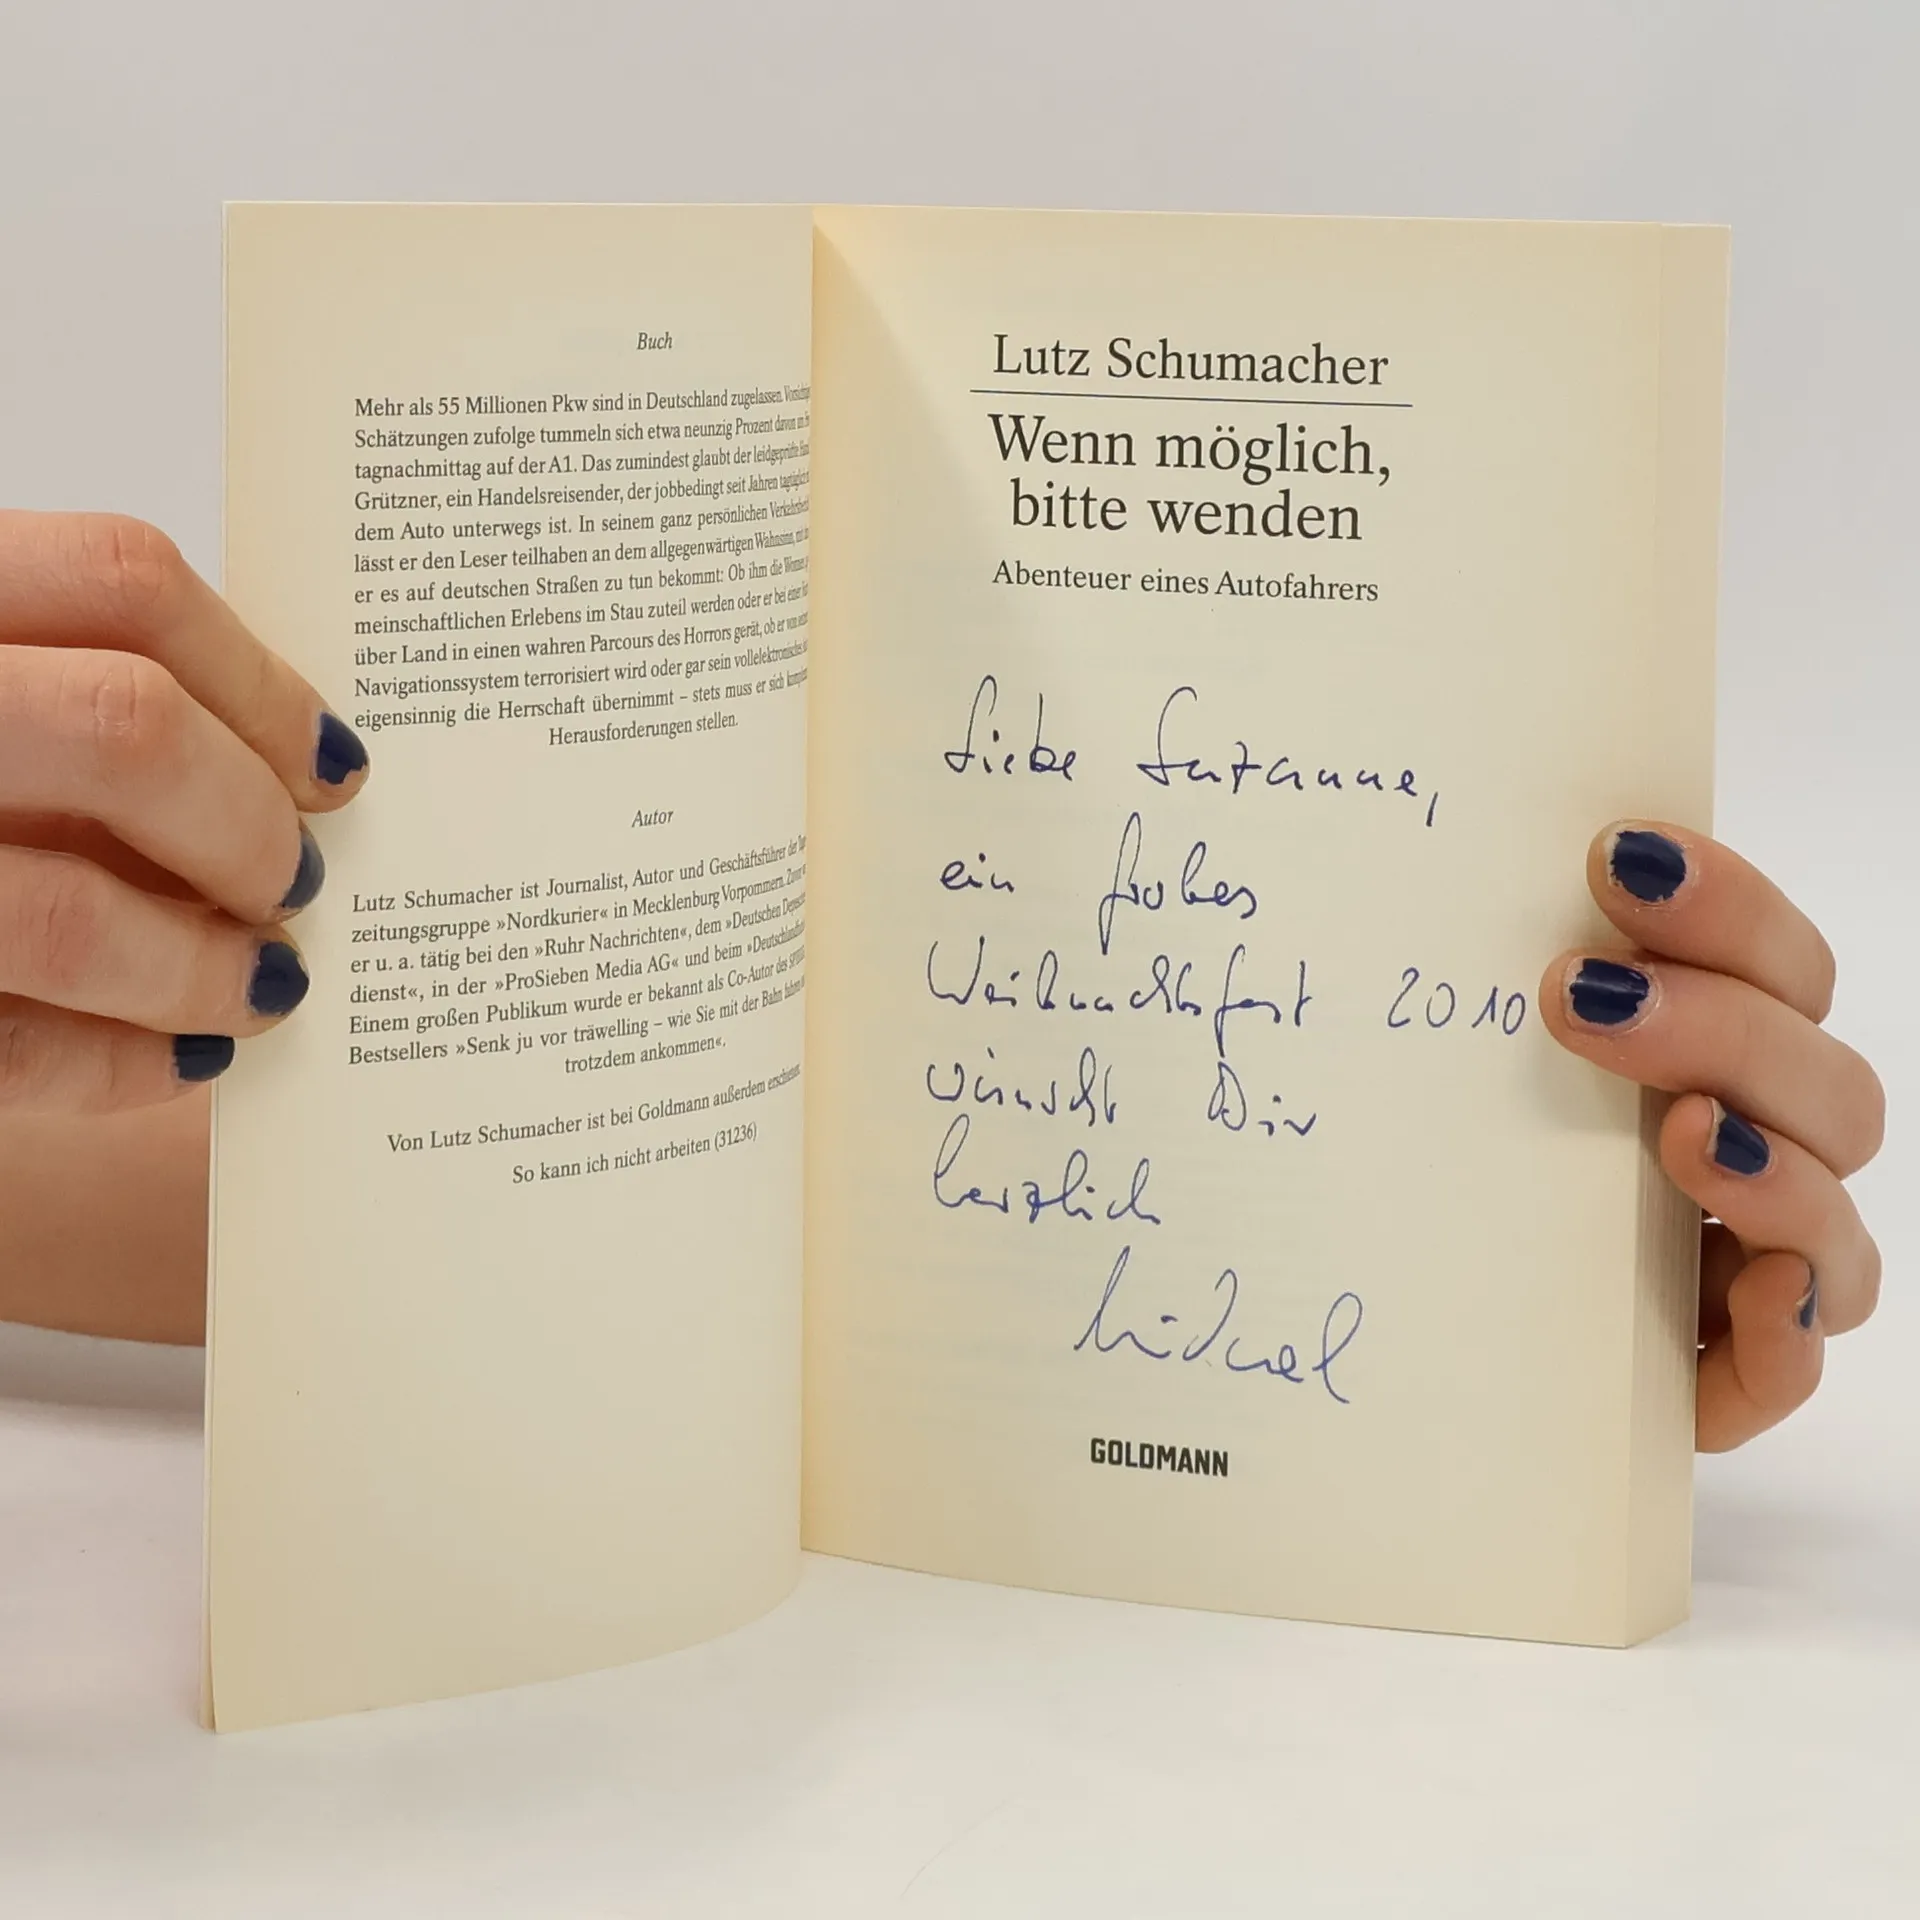 Buch
Mehr als 55 Millionen Pkw sind in Deutschland zugelassen.
Schätzungen zufolge tummeln sich etwa neunzig Prozent davon an
tagnachmittag auf der A1. Das zumindest glaubt der leidgeprüfte
Grützner, ein Handelsreisender, der jobbedingt seit Jahren
dem Auto unterwegs ist. In seinem ganz persönlichen
lässt er den Leser teilhaben an dem allgegenwärtigen Wahnsinn,
er es auf deutschen Straßen zu tun bekommt: Ob ihm die
meinschaftlichen Erlebens im Stau zuteil werden oder er bei einer
über Land in einen wahren Parcours des Horrors gerät, ob er von
Navigationssystem terrorisiert wird oder gar sein vollelektronisches
eigensinnig die Herrschaft übernimmt – stets muss er sich
Herausforderungen stellen.
Autor
Lutz Schumacher ist Journalist, Autor und Geschäftsführer der
zeitungsgruppe »Nordkurier« in Mecklenburg Vorpommern. Zuvor
er u. a. tätig bei den »Ruhr Nachrichten«, dem »Deutschen
dienst«, in der »ProSieben Media AG« und beim
Einem großen Publikum wurde er bekannt als Co-Autor des
Bestsellers »Senk ju vor träwelling – wie Sie mit der Bahn fahren
trotzdem ankommen«.
Von Lutz Schumacher ist bei Goldmann außerdem erschienen:
So kann ich nicht arbeiten (31236)
Lutz Schumacher
Wenn möglich,
bitte wenden
Abenteuer eines Autofahrers
Liebe Suzanne,
ein frohes
Weihnachtsfest 2010
wünscht Dir
herzlich
Michael
GOLDMANN